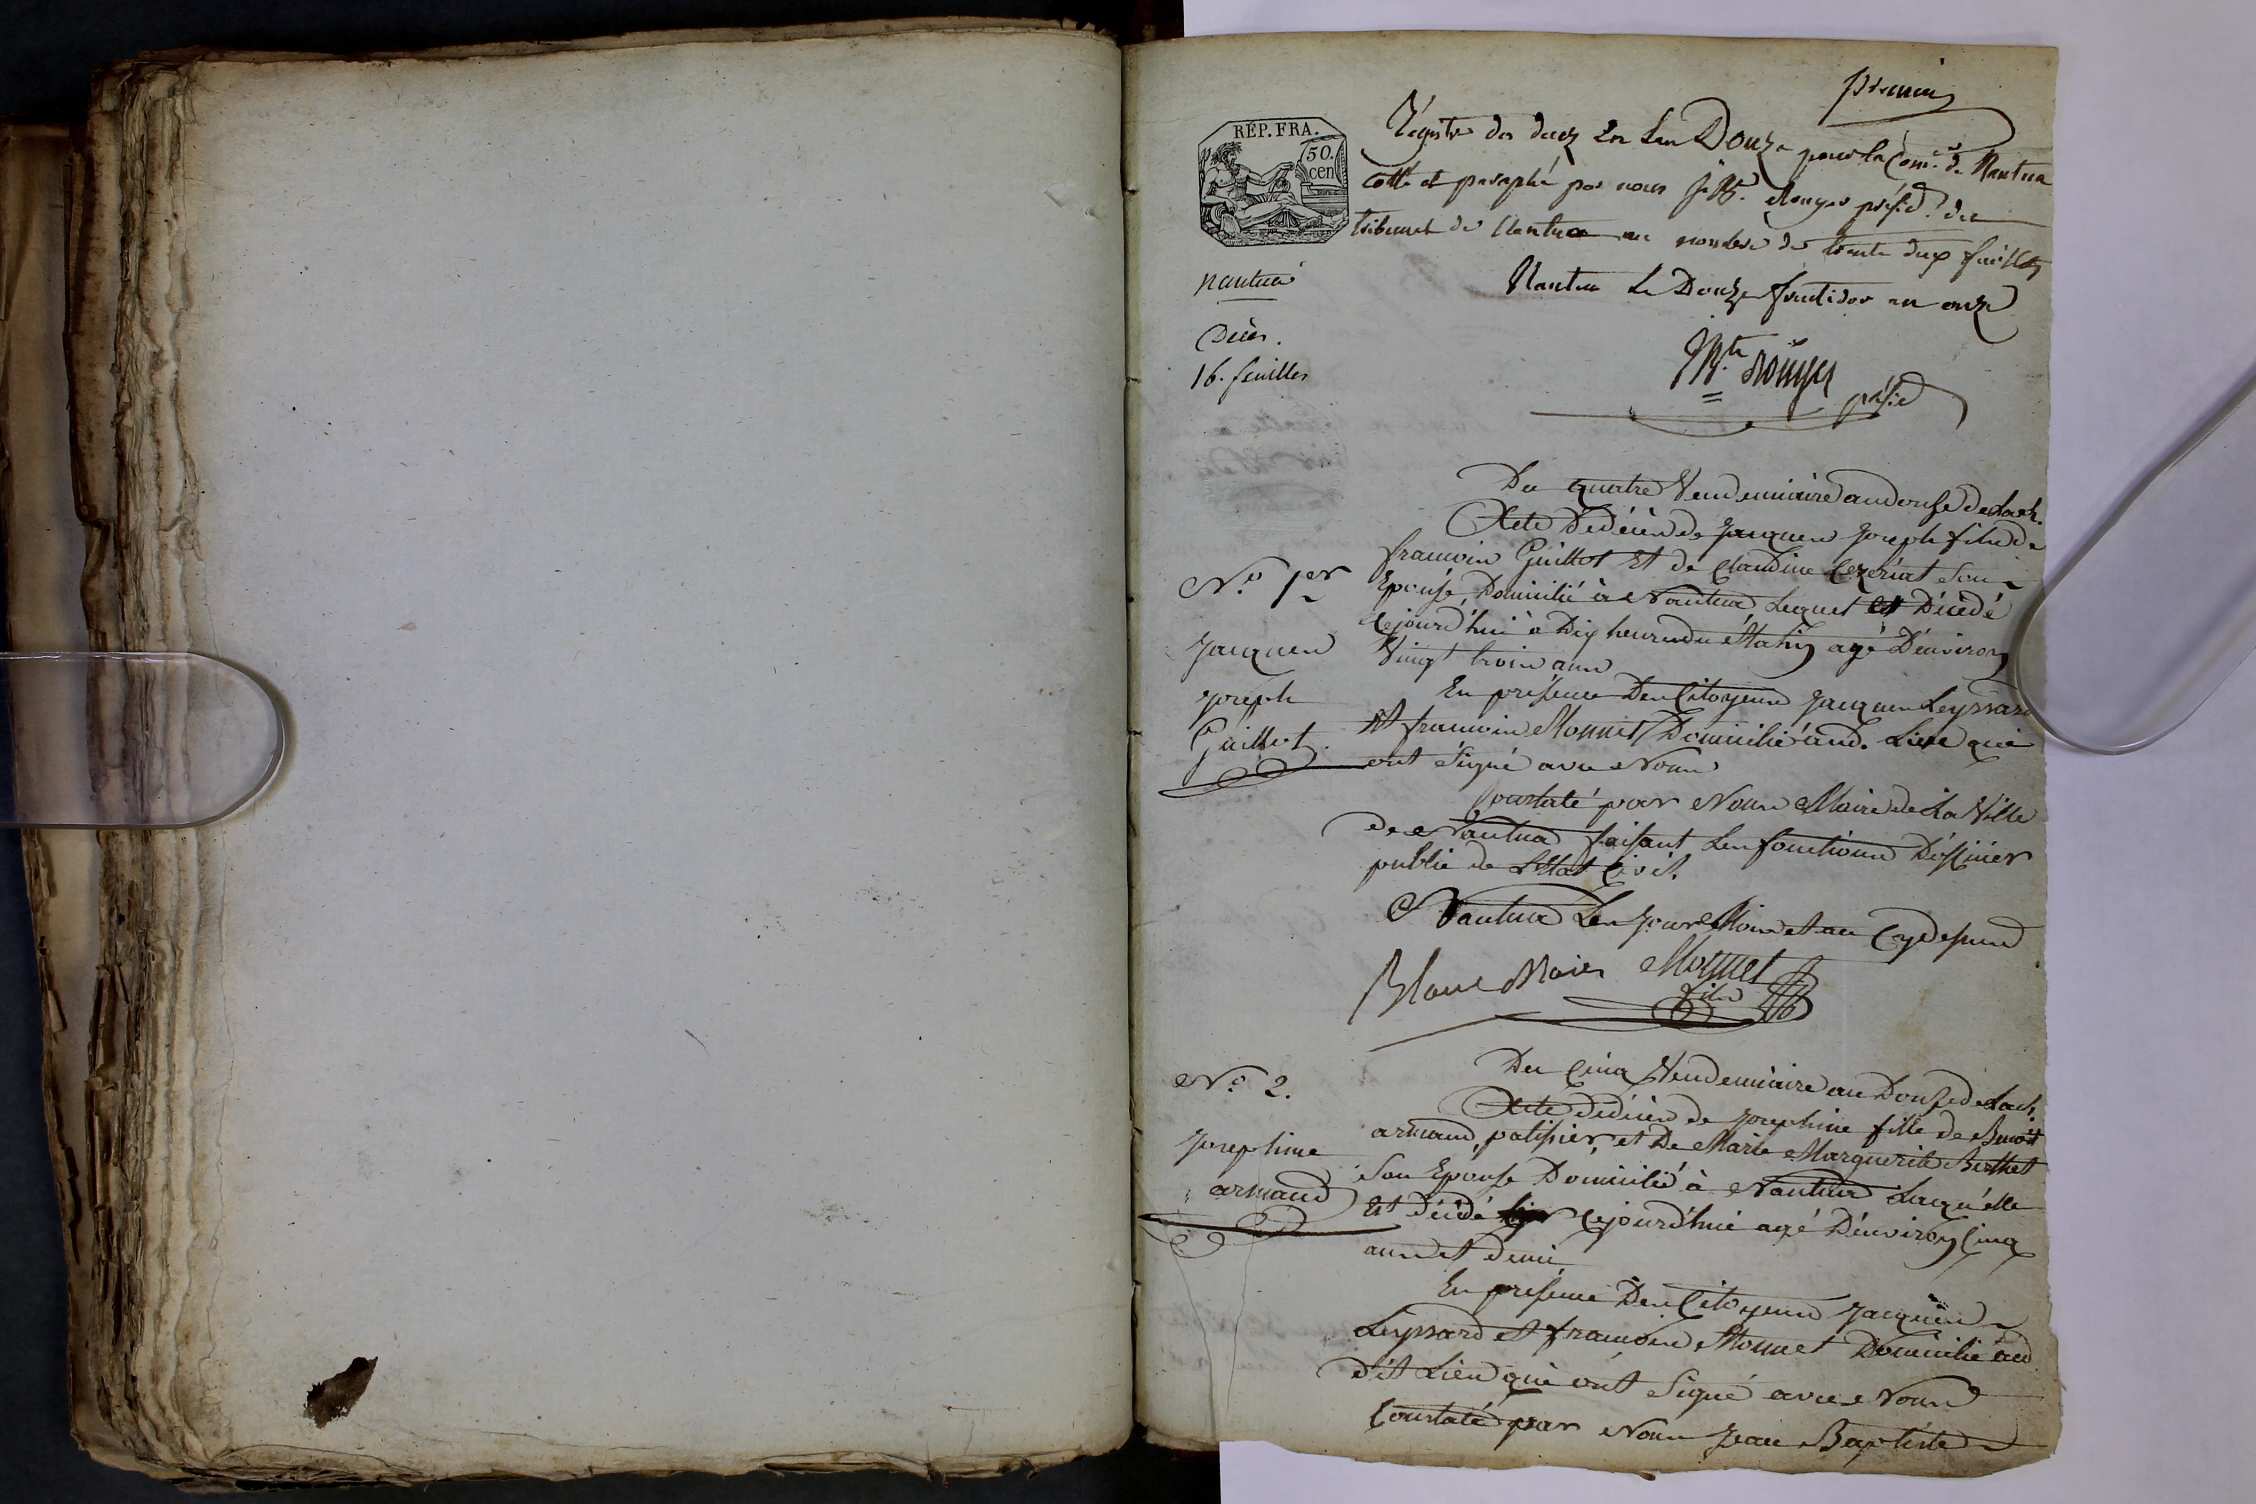 premier
RÉP. FRA.
50.
cen
Registre des decez En Lan Douze pour la Com.ne de Nantua
cotté et paraphé par nous J. Bte. Rouyer présid. du
tribunal de Nantua au nombre de trente deux feuillets
Nantua Le Douze fructidor an onze
JBte Rouyer
présid
nantua
Décès.
16. feuilles
Du quatre Vendemiaire an douze de la R.
Acte de décès de Jacques Joseph fils de
francois Guillot Et de Claudine Cezeriat Son
Epouse, Domicilié à Nantua Lequel est Décédé
Cejourd'hui à Dix heures du Matin agé D'environ
Vingt trois ans
En présence Des Citoyens Jacques Leyssard
Et francois Monnet Domicilié aud. Lieu qui
ont Signé avec Nous
Constaté par Nous Maire de La Ville
de Nantua faisant Les fonctions D'officier
public de L'Etat Civil.
Nantua Les Jour Mois et an Cy dessus
Blanc Maire Monnet
fils
No. 1er
Jacques
Joseph
Guillot.
Du Cinq Vendemiaire an Douze de la R.
Acte de décès de Josephine fille de Benoit
armand, patissier, et De Marie Marguerite Berthet
Son Epouse Domicilié à Nantua Laquelle
Est décédé Cejourd'hui agé D'environ Cinq
ans et demi
En présence Des Citoyens Jacques
Leyssard et francois Monnet Domicilié au
dit Lieu qui ont Signé avec Nous
Constaté par Nous Jean Baptiste
No. 2.
Josephine
armand